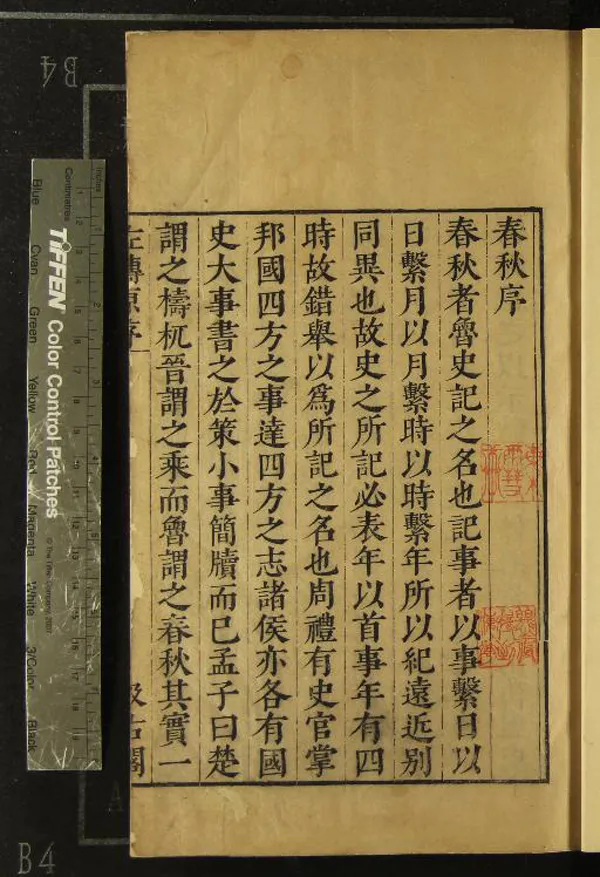 春秋序
春秋者魯史記之名也記事者以事繫日以
日繫月以月繫時以時繫年所以紀遠近別
同異也故史之所記必表年以首事年有四
時故錯舉以爲所記之名也周禮有史官掌
邦國四方之事達四方之志諸侯亦各有國
史大事書之於策小事簡牘而已孟子曰楚
謂之檮杌晉謂之乘而魯謂之春秋其實一
左傳原序 一 汲古閣
B4
B4
inches
Centimetres
TIFFEN Color Control Patches
© The Tiffen Company, 2007
Blue
Cyan
Green
Yellow
Red
Magenta
White
3/Color
Black